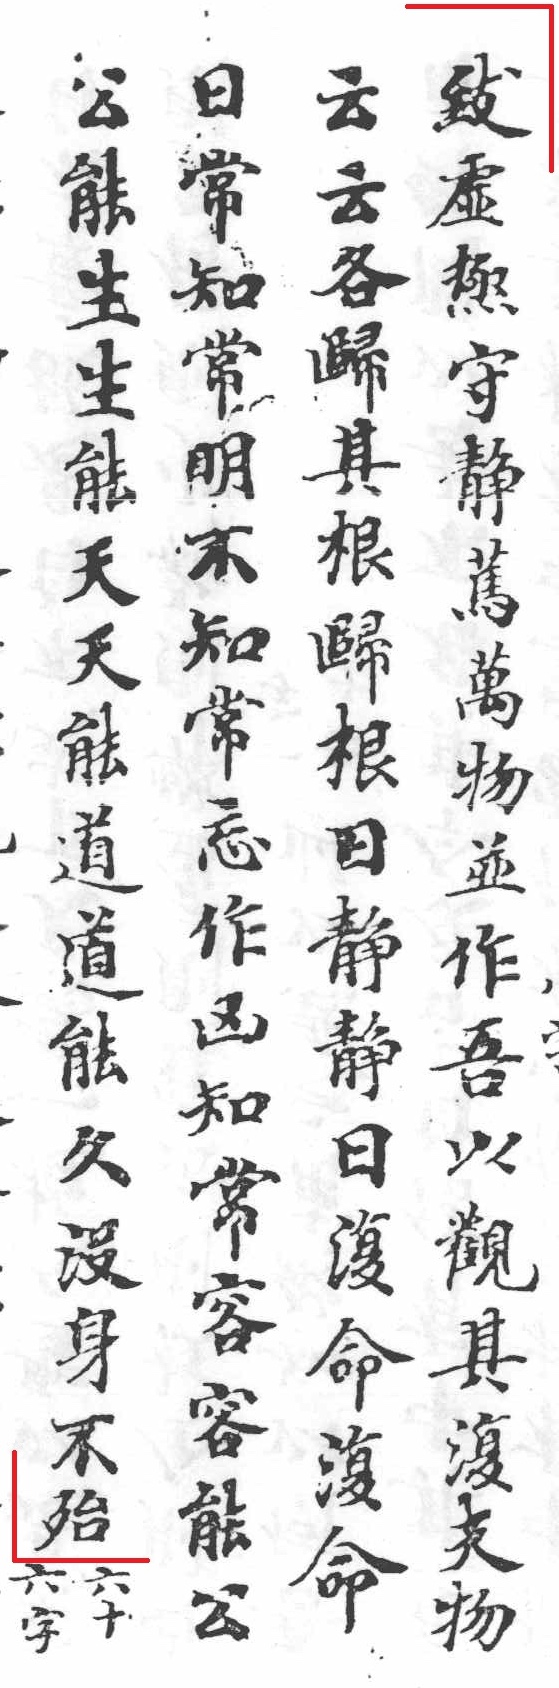 致虛極守靜萬萬物並作吾以觀其復夫物
云云各歸其根歸根曰靜靜曰復命復命
曰常知常明不知常忘作凶知常容容能公
公能生生能天天能道道能久沒身不殆
六十
六字